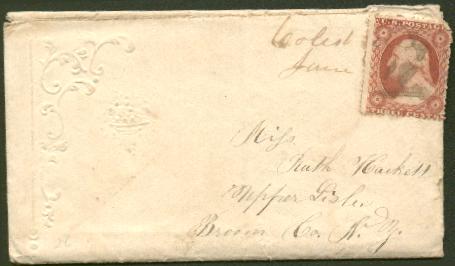 Colest
June
U.S. POSTAG
Miss
Ruth Hackett
Upper Lisle
Broom Co. N. Y.